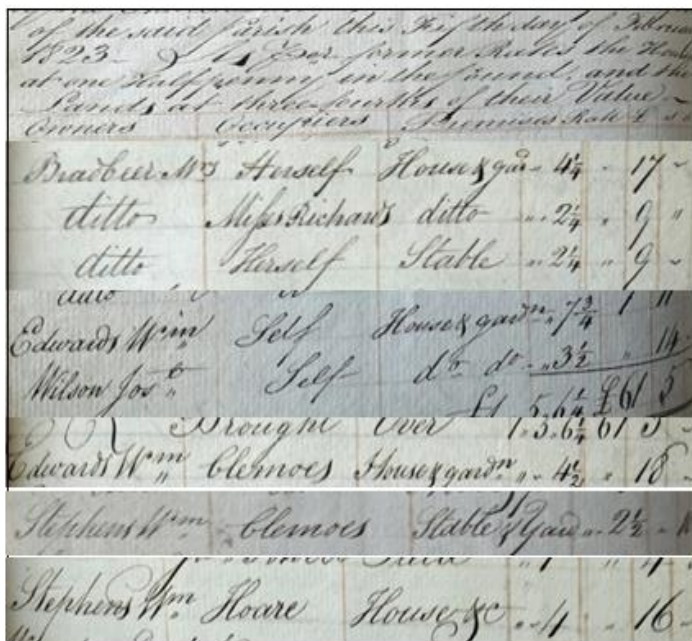 of the said parish this Fifth day of Februa
1823 - As per former Rules the Hous
at one Half penny in the pound, and the
Lands at three fourths of their Value ~
Owners Occupiers Premises Rate £ s d
Bradbeer Mrs Herself House & gdn " 4¼ " 17 "
ditto Miss Richards ditto " 2¼ " 9 "
ditto Herself Stable " 2¼ " 9 "
Edwards Wm Self House & gardn " 7¾ 1 11
Wilson Jos Self do do " 3½ " 14
£1 5 6¼ £61 5
Brought Over 1. 5. 6¼ 61 5 "
Edwards Wm Clemoes House & gardn " 4½ " 18 "
Stephens Wm Clemoes Stable & Yard " 2½ "
Stephens Wm Hoare House &c " 4 " 16 "